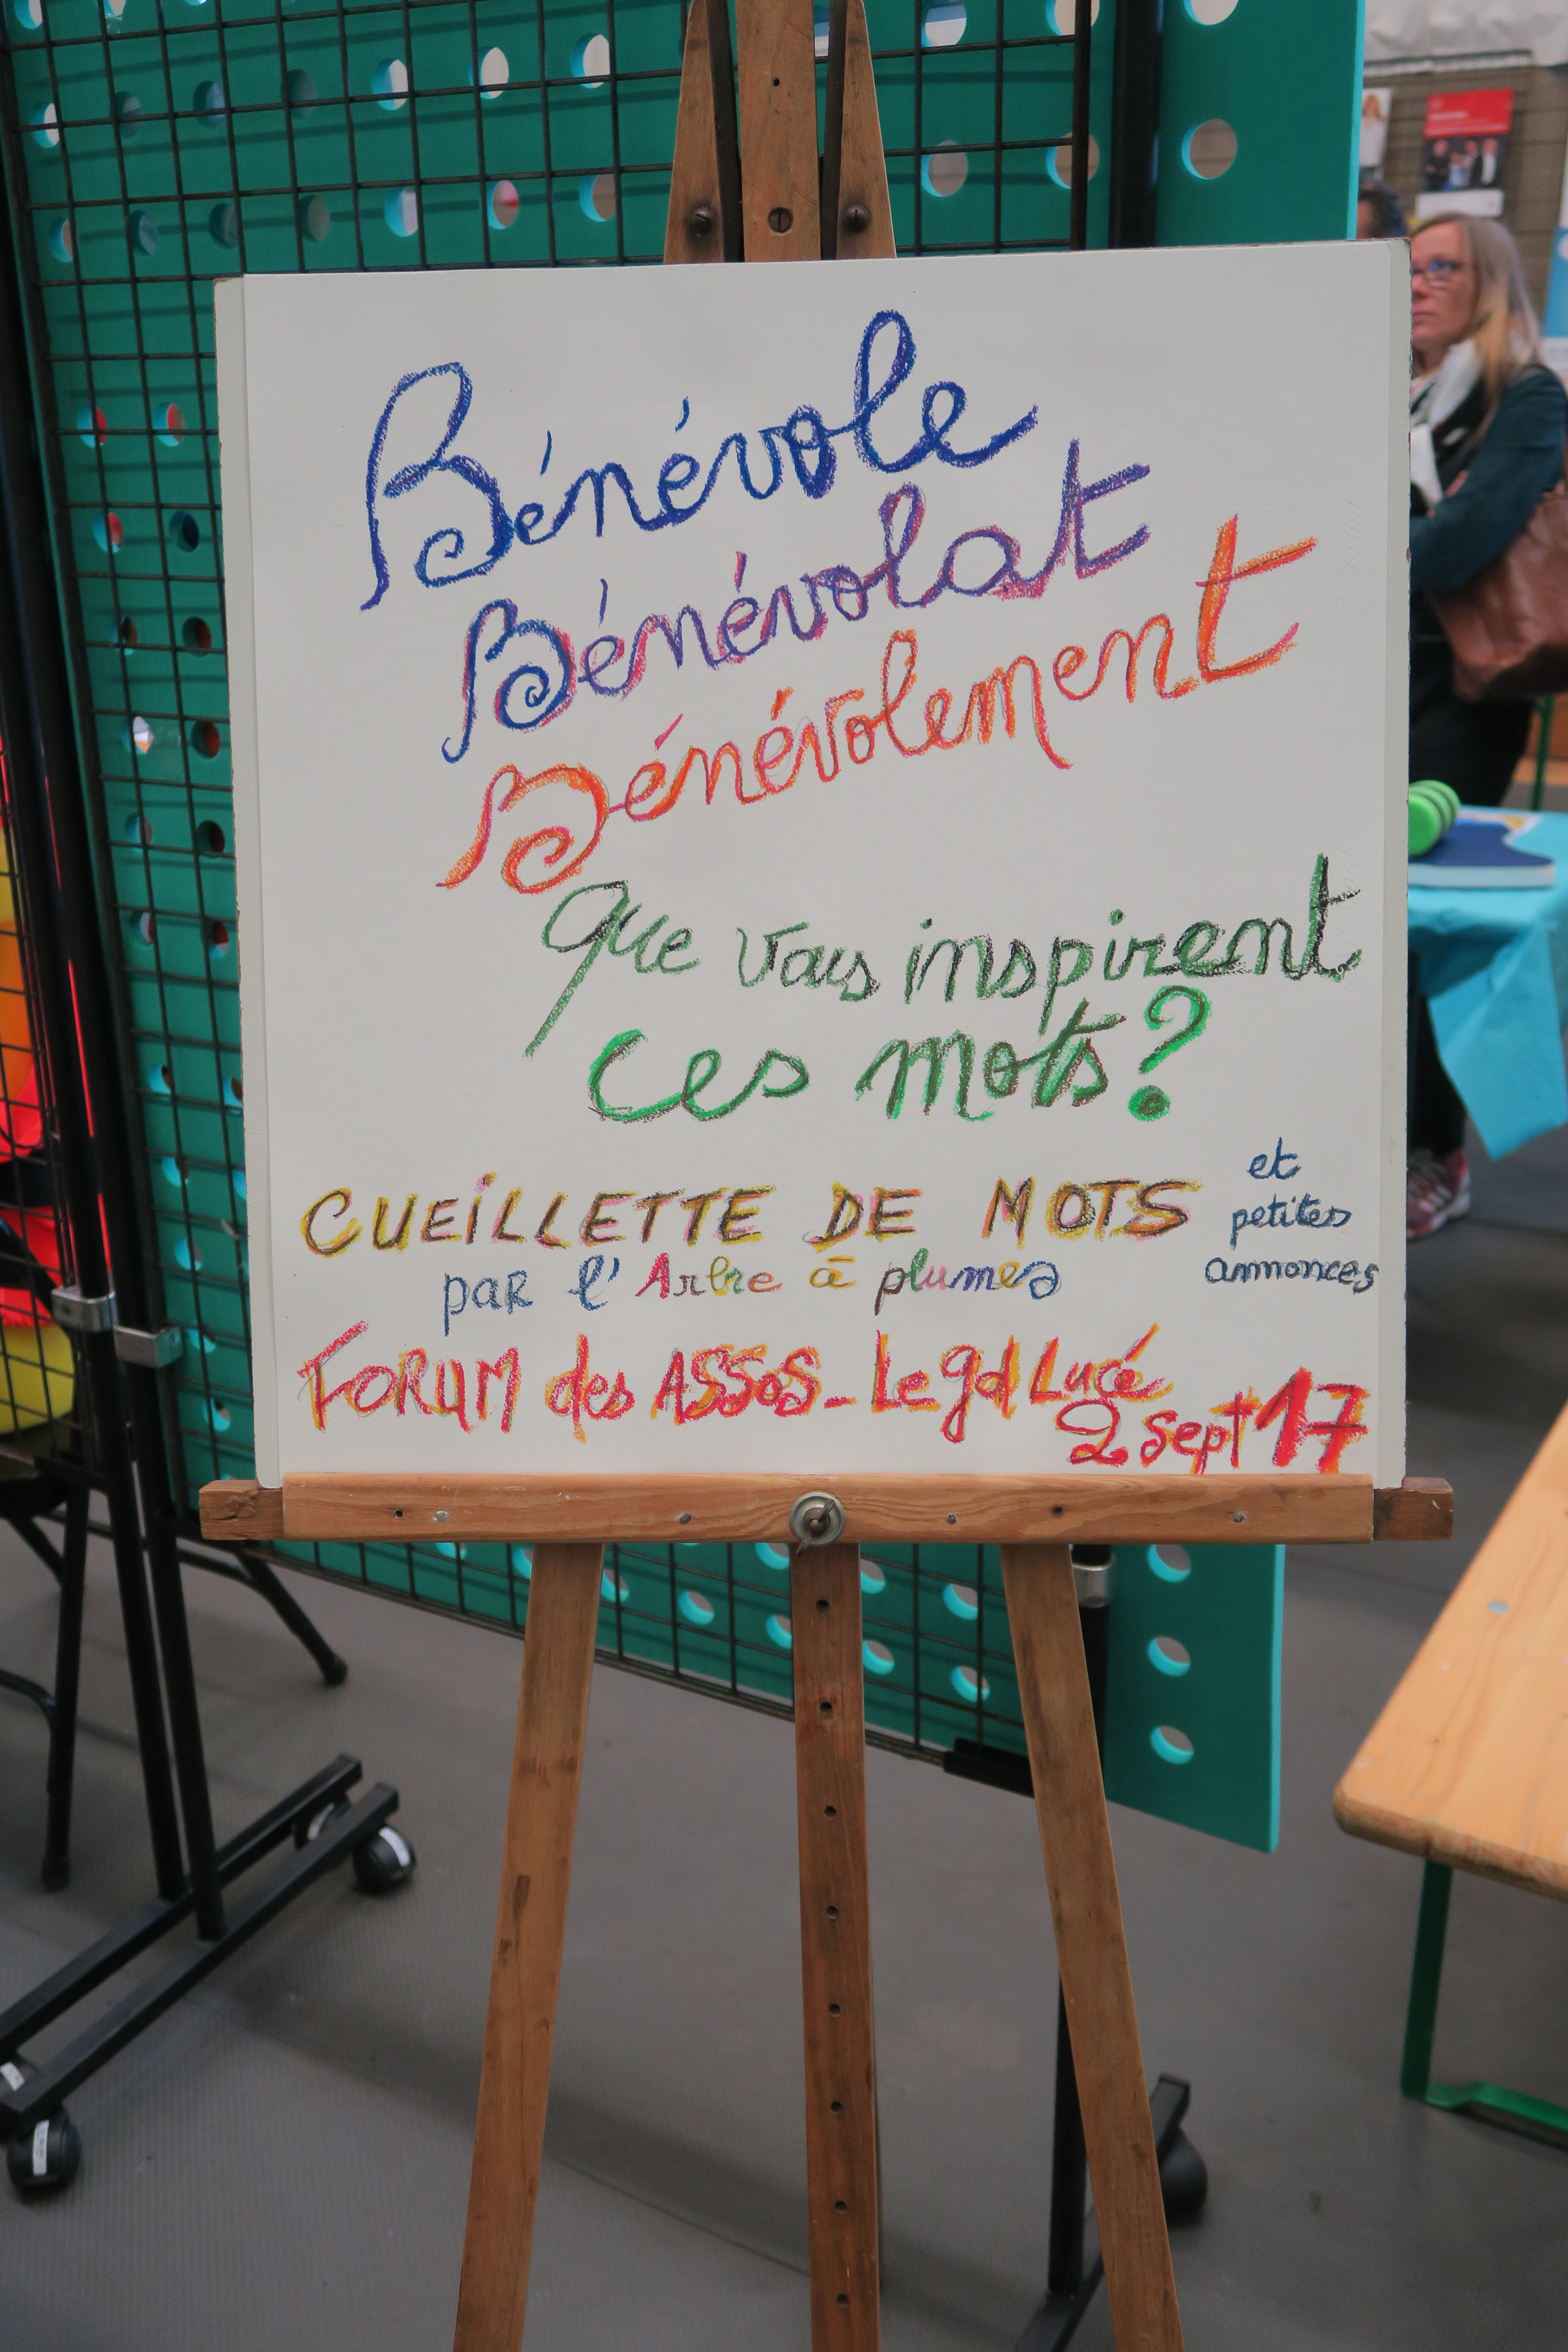 Bénévole
Bénévolat
Bénévolement
Que vous inspirent
ces mots?
CUEILLETTE DE MOTS
et
petites
annonces
par l'Arbre à plumes
FORUM des ASSOS - Le gd Lucé
2 sept 17